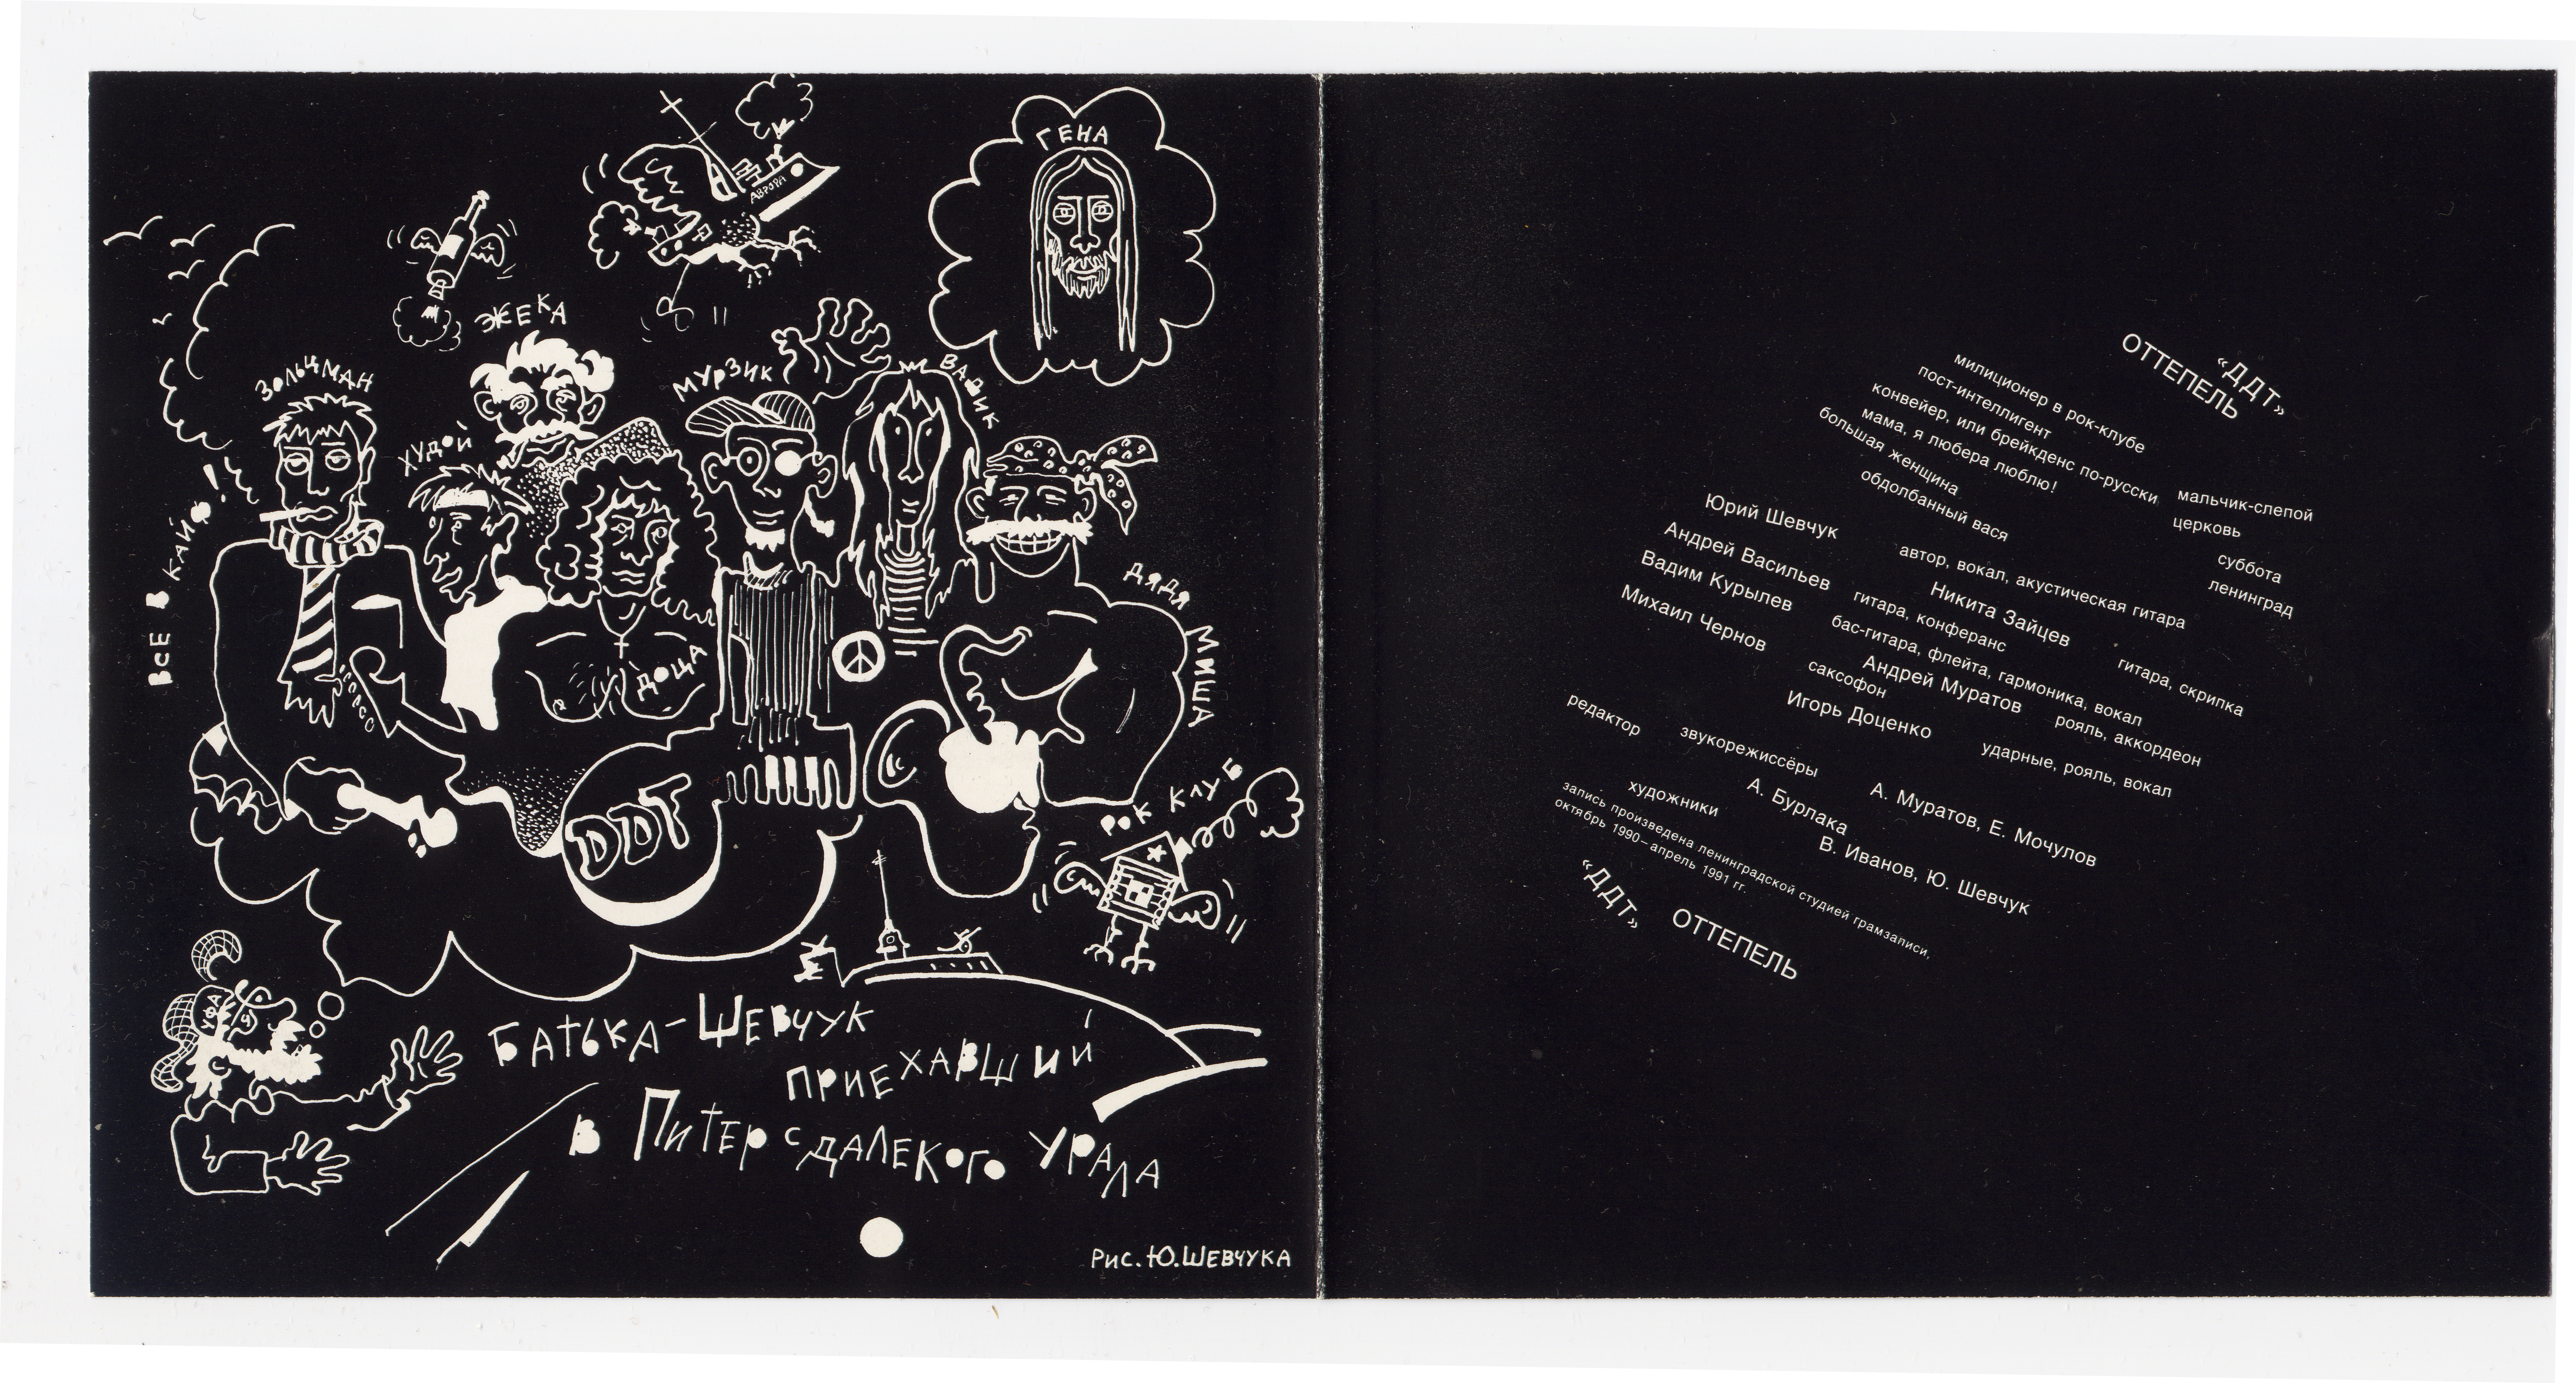 ГЕНА
АВРОРА
ЭЖЕКА
ЗОЛЬЦМАН
ХУДОЙ
МУРЗИК
ВАДИК
ВСЕ В КАЙФ!
ДОЦА
ДЯДЯ МИША
DDT
РОК КЛУБ
УФА
БАТЬКА-ШЕВЧУК
ПРИЕХАВШИЙ
В ПИТЕР С ДАЛЕКОГО УРАЛА
РИС. Ю. ШЕВЧУКА
«ДДТ»
ОТТЕПЕЛЬ
милиционер в рок-клубе
пост-интеллигент
конвейер, или брейкденс по-русски
мама, я любера люблю!
большая женщина
обдолбанный вася
мальчик-слепой
церковь
суббота
ленинград
Юрий Шевчук
автор, вокал, акустическая гитара
Андрей Васильев
гитара, конферанс
Никита Зайцев
гитара, скрипка
Вадим Курылев
бас-гитара, флейта, гармоника, вокал
Андрей Муратов
рояль, аккордеон
Михаил Чернов
саксофон
Игорь Доценко
ударные, рояль, вокал
звукорежиссёры
А. Муратов, Е. Мочулов
редактор
А. Бурлака
художники
В. Иванов, Ю. Шевчук
запись произведена ленинградской студией грамзаписи,
октябрь 1990–апрель 1991 гг.
«ДДТ»
ОТТЕПЕЛЬ